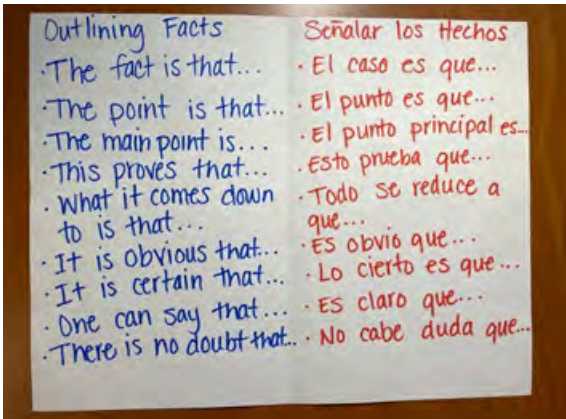 Outlining Facts
· The fact is that...
· The point is that...
· The main point is...
· This proves that...
· What it comes down
to is that...
· It is obvious that...
· It is certain that...
· One can say that...
· There is no doubt that...
Señalar los Hechos
· El caso es que...
· El punto es que...
· El punto principal es...
· Esto prueba que...
· Todo se reduce a
que...
· Es obvio que...
· Lo cierto es que...
· Es claro que...
· No cabe duda que...